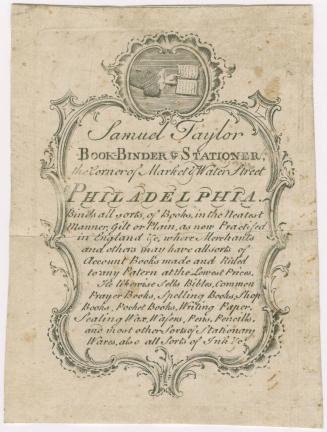 Samuel Taylor
BOOK-BINDER & STATIONER,
the Corner of Market & Water Street
PHILADELPHIA.
Binds all sorts, of Books, in the Neatest
Manner, Gilt or Plain, as now Practised
in England &c, where Merchants
and others may have all sorts of
Account Books made and Ruled
to any Patern at the Lowest Prices.
He likewise Sells Bibles, Common
Prayer Books, Spelling Books, Shop
Books, Pocket Books, Writing Paper,
Sealing Wax, Wafers, Pens, Pencills,
and most other Sorts of Stationary
Wares, also all Sorts of Ink &c